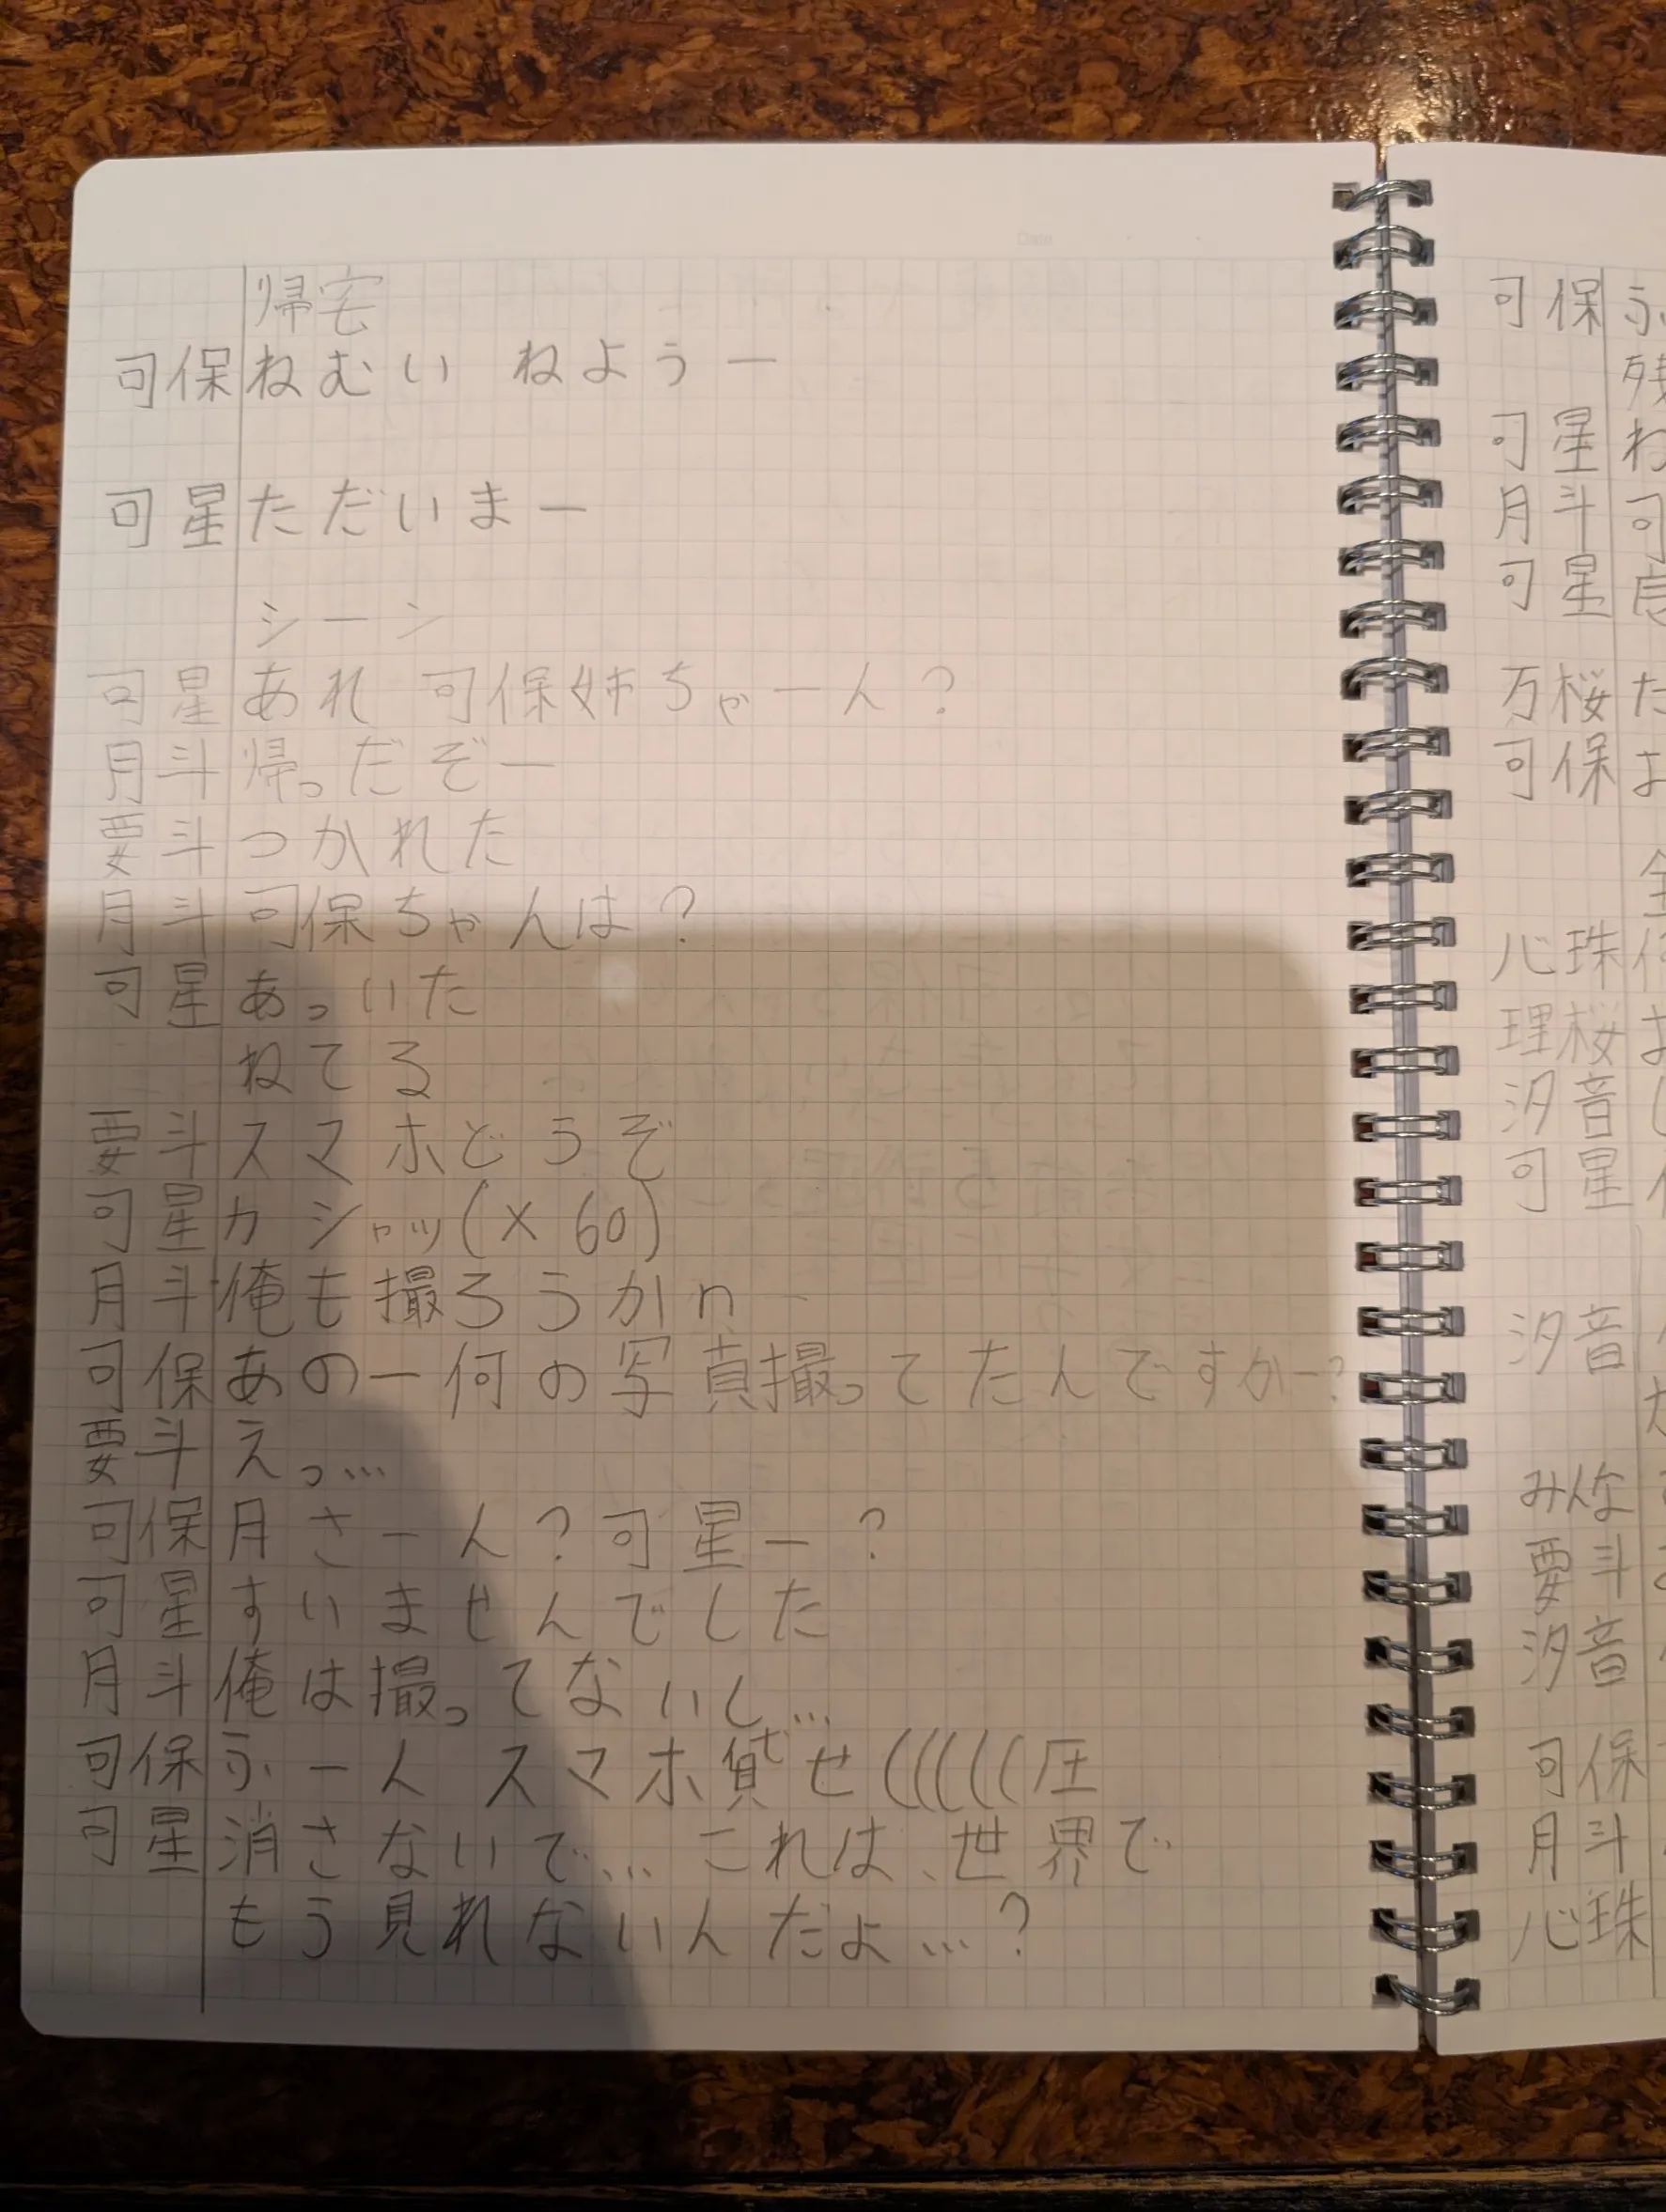 帰宅
可保 ねむい ねようー
可星 ただいまー
シーン
可星 あれ 可保姉ちゃーん?
月斗 帰っだぞー
要斗 つかれた
月斗 可保ちゃんは?
可星 あっいた
ねてる
要斗 スマホどうぞ
可星 カシャッ(×60)
月斗 俺も撮ろうかn
可保 あのー何の写真撮ってたんですかー?
要斗 えっ…
可保 月さーん?可星ー?
可星 すいませんでした
月斗 俺は撮ってないし…
可保 ふーん スマホ貸せ(((((圧
可星 消さないで… これは、世界で
もう見れないんだよ…?
可保 ふ
残
可星 わ
月斗 可
可星
万桜 た
可保 お
心珠
理桜 お
汐音 し
可星
汐音
みんな
要斗
汐音
可保
月斗
心珠